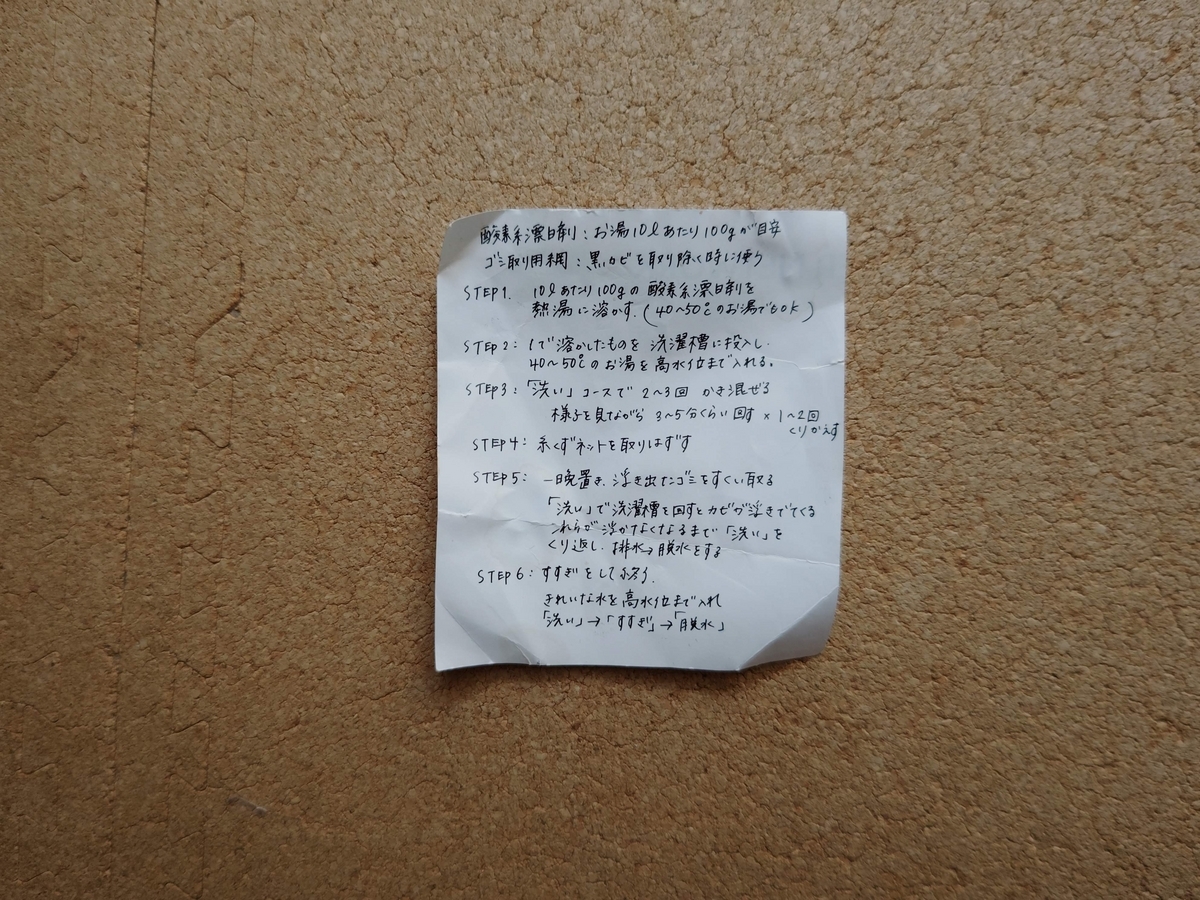 酸素系漂白剤：お湯10ℓあたり100gが目安
ゴミ取り用網：黒カビを取り除く時に使う
STEP1. 10ℓあたり100gの酸素系漂白剤を
熱湯に溶かす.(40~50℃のお湯でもOK)
STEP2：1で溶かしたものを洗濯槽に投入し.
40~50℃のお湯を高水位まで入れる。
STEP3：「洗い」コースで2~3回かき混ぜる
様子を見ながら3~5分くらい回す×1~2回
くりかえす
STEP4：糸くずネットを取りはずす
STEP5：一晩置き、浮き出たゴミをすくい取る
「洗い」で洗濯槽を回すとカビが浮きでてくる
これらが浮かなくなるまで「洗い」を
くり返し.排水→脱水をする
STEP6：すすぎをして終う.
きれいな水を高水位まで入れ
「洗い」→「すすぎ」→「脱水」